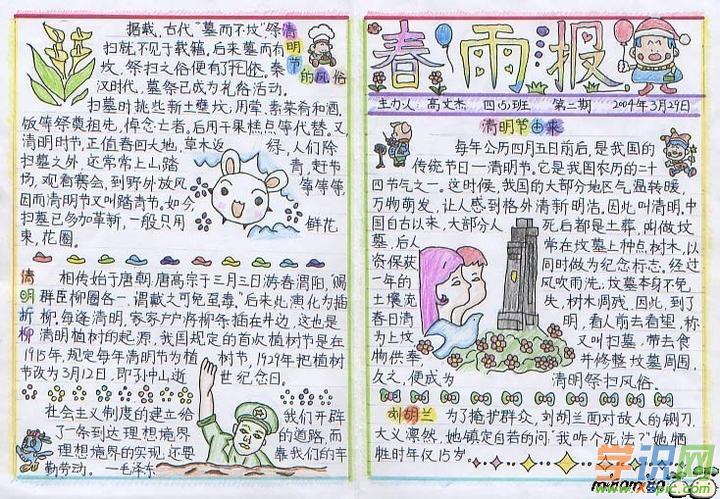 据载，古代"墓而不坟"祭
扫就不见于载籍，后来墓而有
坟，祭扫之俗便有了托依。秦
汉时代，墓祭已成为礼俗活动。
扫墓时挑些新土壅坟；用荤、素菜肴和酒、
饭等祭奠祖先，悼念亡者。后用于果糕点等代替。又
清明时节，正值春回大地，草木返绿，人们除
扫墓之外，还常常上山踏青，赶书
场，观看赛会，到野外放风等等等，
因而清明节又叫踏青节。如今，
扫墓已多加革新，一般只用鲜花
束，花圈。
清明节的风俗
清明折柳
相传始于唐朝，唐高宗于三月三日游春渭阳，赐
群臣柳圈各一，谓戴之可免虿毒。"后来此演化为插
柳，每逢清明，家家户户将柳条插在井边，这也是
清明植树的起源，我国规定的首次植树节是在
1915年，规定每年清明节为植树节，1929年把植树
节改为3月12日，即孙中山逝世纪念日。
社会主义制度的建立给我们开辟
了一条到达理想境界的道路，而
理想境界的实现，还要靠我们的辛
勤劳动。—毛泽东
春雨报
主办人：高文杰 四(5)班 第二期 2004年3月29日
清明节由来
每年公历四月五日前后，是我国的
传统节日—清明节。它是我国农历的二十
四节气之一。这时候，我国的大部分地区气温转暖，
万物萌发，让人感到格外清新明洁。因此叫清明。中
国自古以来，大部分人死后都是土葬，叫做坟
墓，后人常在坟墓上种点树木，以
资保获同时做为纪念标志。经过
一年的风吹雨洗，坟墓本身不免
土壤流失，树木凋残。因此，到了
春日清明，看人前去看望，称
为上坟又叫扫墓，带去食
物供奉，并修整坟墓周围，
久之，便成为清明祭扫风俗。
刘胡兰 为了掩护群众，刘胡兰面对敌人的铡刀，
大义凛然，她镇定自若的问"我咋个死法？"她牺
牲时年仅15岁。
学识网